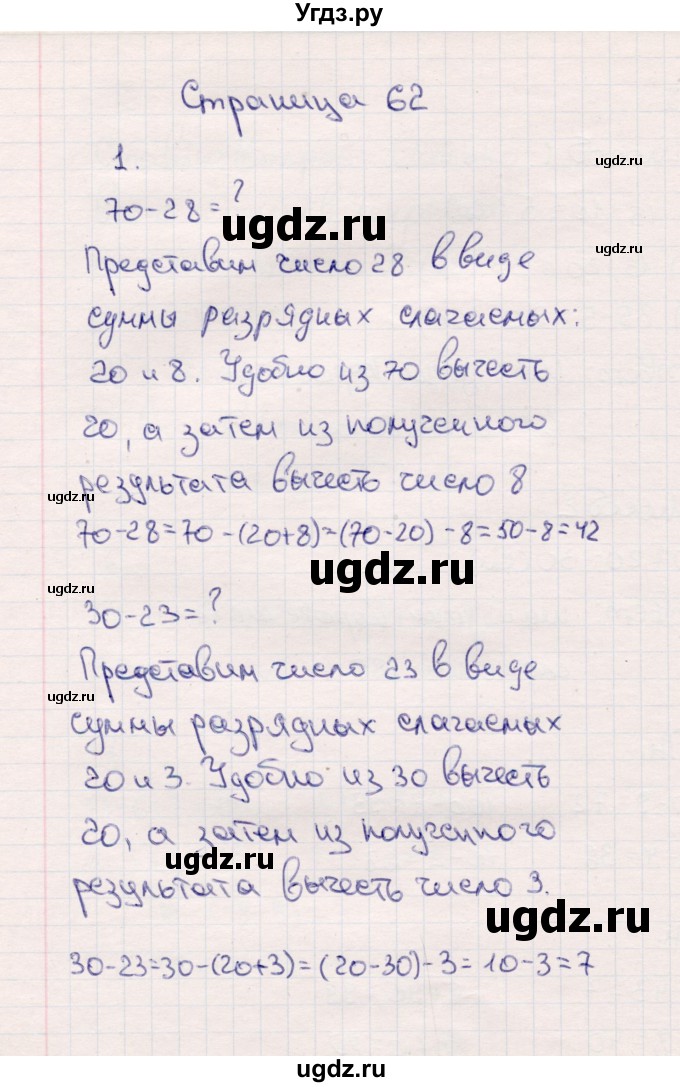 Угдз.ру
Страница 62
ugdz.ru
1.
70-28=?
ugdz.ru
ugdz.ru
Представим число 28 в виде
суммы разрядных слагаемых:
20 и 8. Удобно из 70 вычесть
20, а затем из полученного
результата вычесть число 8
ugdz.ru
70-28=70-(20+8)=(70-20)-8=50-8=42
ugdz.ru
ugdz.ru
30-23=?
Представим число 23 в виде
ugdz.ru
суммы разрядных слагаемых
20 и 3. Удобно из 30 вычесть
20, а затем из полученного
ugdz.ru
результата вычесть число 3.
ugdz.ru
30-23=30-(20+3)=(20-30)-3=10-3=7
ugdz.ru